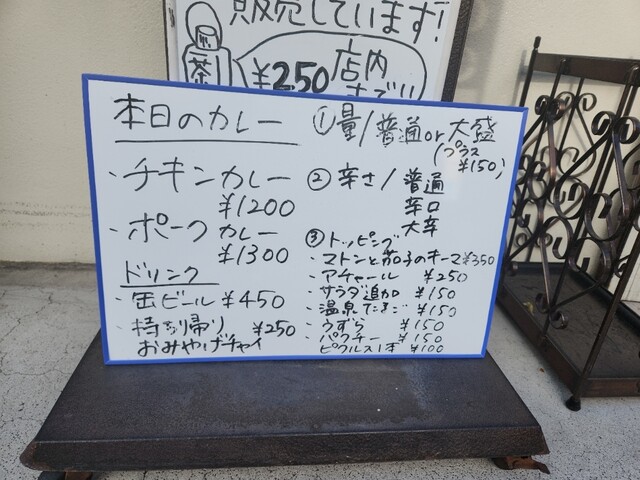 販売しています!
茶
¥250 店内
までい
本日のカレー
・チキンカレー
¥1200
・ポークカレー
¥1300
ドリンク
・缶ビール ¥450
・持ち帰り ¥250
おみやげチャイ
①量/普通or大盛
(プラス
¥150)
②辛さ/普通
辛口
大辛
③トッピング
・マトンと茄子のキーマ¥350
・アチャール ¥250
・サラダ追加 ¥150
・温泉たまご ¥150
・うずら ¥150
・パクチー ¥150
ピクルス1本 ¥100